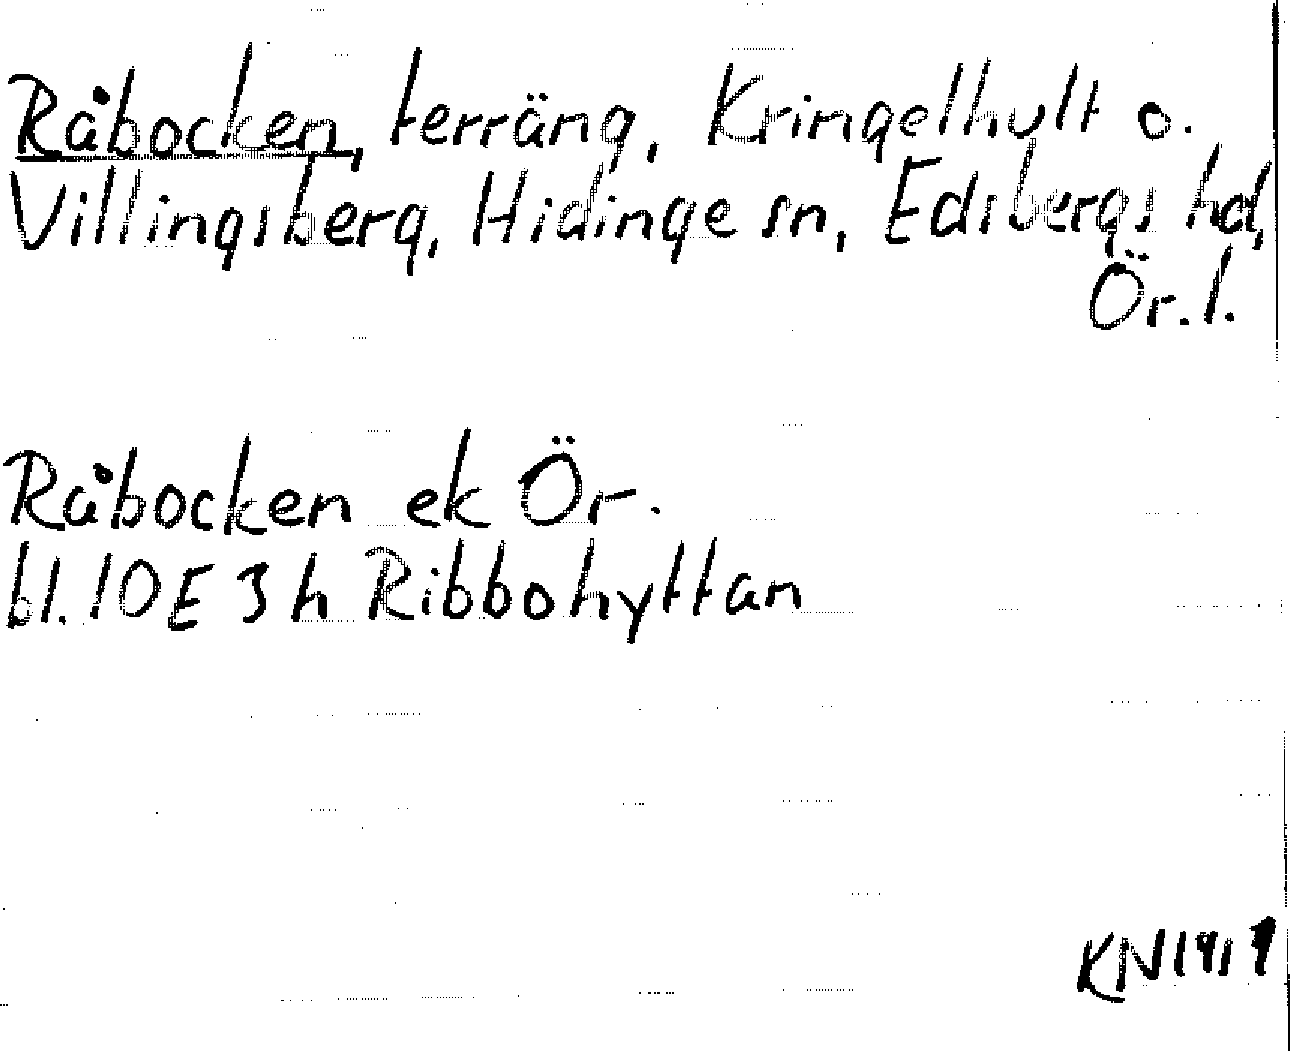 Råbocken, terräng, Kringelhult o.
Villingsberg, Hidinge sn, Edsbergs hd,
Ör. l.
Råbocken ek Ör.
bl. 10E 3h Ribbohyttan